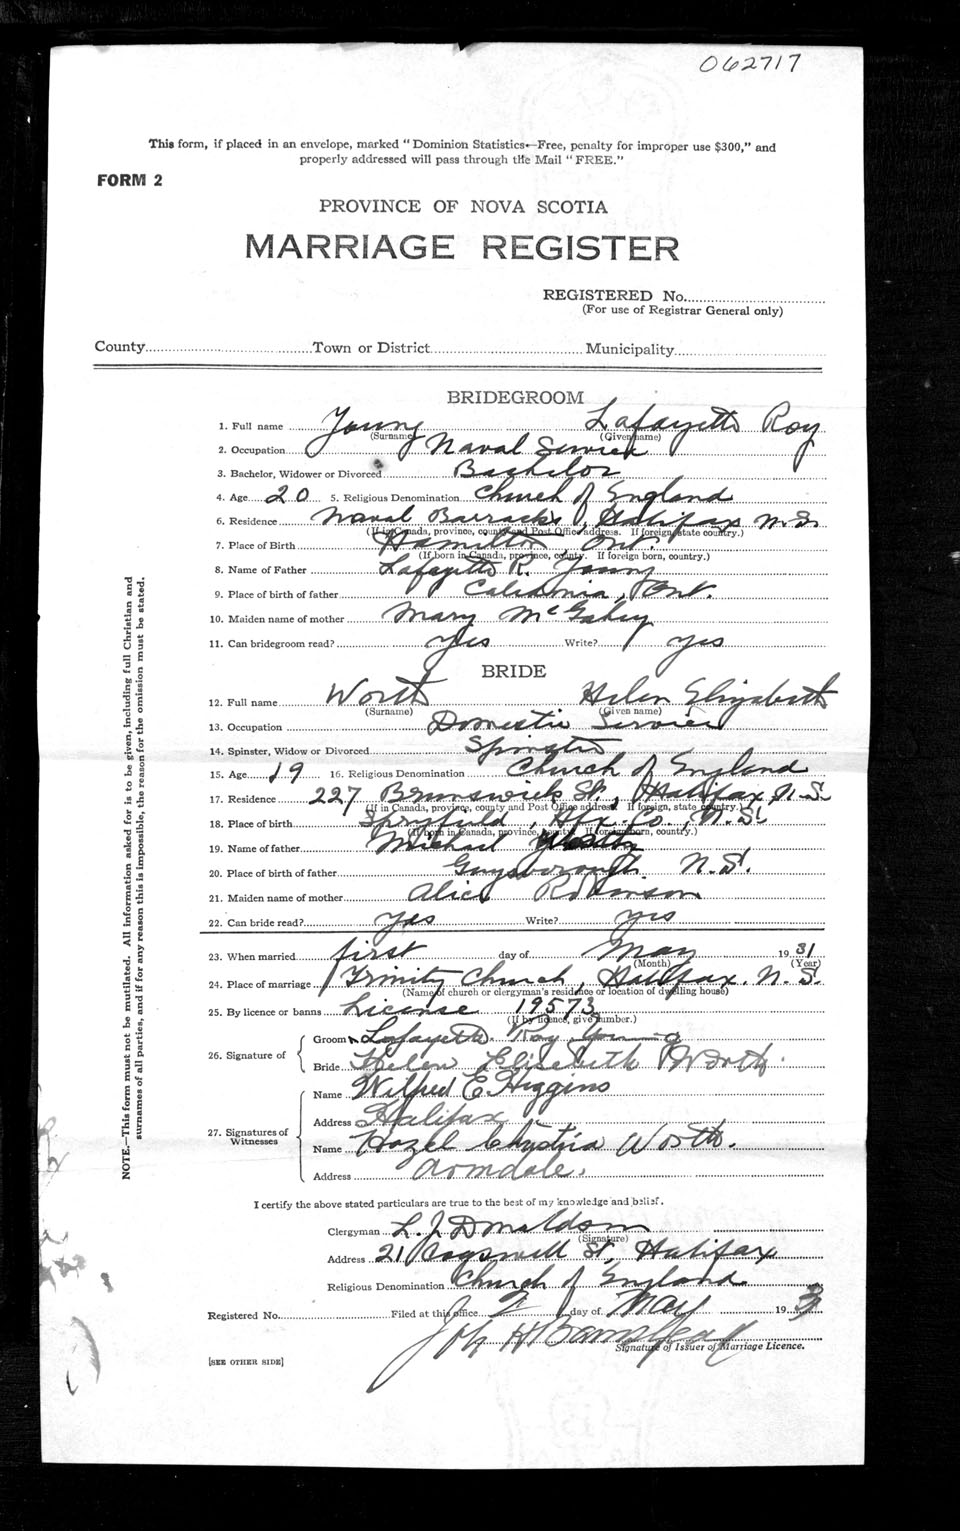 062717
This form, if placed in an envelope, marked "Dominion Statistics—Free, penalty for improper use $300," and
properly addressed will pass through the Mail "FREE."
FORM 2
PROVINCE OF NOVA SCOTIA
MARRIAGE REGISTER
REGISTERED No.
(For use of Registrar General only)
County Town or District Municipality
BRIDEGROOM
1. Full name Young Lafayette Roy
(Surname) (Given name)
2. Occupation Naval Service
3. Bachelor, Widower or Divorced Bachelor
4. Age 20 5. Religious Denomination Church of England
6. Residence Naval Barracks, Halifax N.S.
(If in Canada, province, county and Post Office address. If foreign, state country.)
7. Place of Birth Hamilton Ont.
(If born in Canada, province, county. If foreign born, country.)
8. Name of Father Lafayette R. Young
9. Place of birth of father Caledonia, Ont.
10. Maiden name of mother Mary McGahey
11. Can bridegroom read? Yes Write? Yes
BRIDE
12. Full name Worth Helen Elizabeth
(Surname) (Given name)
13. Occupation Domestic Service
14. Spinster, Widow or Divorced Spinster
15. Age 19 16. Religious Denomination Church of England
17. Residence 227 Brunswick St., Halifax N.S.
(If in Canada, province, county and Post Office address. If foreign, state country.)
18. Place of birth Spryfield, Hfx. Co., N.S.
(If born in Canada, province, county. If foreign born, country.)
19. Name of father Michael
20. Place of birth of father Guysborough N.S.
21. Maiden name of mother Alice Robinson
22. Can bride read? Yes Write? Yes
23. When married first day of May 1931
(Month) (Year)
24. Place of marriage Trinity Church, Halifax, N.S.
(Name of church or clergyman's residence or location of dwelling house)
25. By licence or banns License 19573
(If by licence, give number.)
26. Signature of
Groom Lafayette Roy Young
Bride Helen Elizabeth Worth
27. Signatures of Witnesses
Name Wilfred E. Higgins
Address Halifax
Name Hazel Worth.
Address Armdale.
I certify the above stated particulars are true to the best of my knowledge and belief.
Clergyman L. J. Donaldson
(Signature)
Address 21 Cogswell St, Halifax
Religious Denomination Church of England
Registered No. Filed at this office 2 day of May 193
Signature of Issuer of Marriage Licence.
[SEE OTHER SIDE]
NOTE.—This form must not be mutilated. All information asked for is to be given, including full Christian and
surnames of all parties, and if for any reason this is impossible, the reason for the omission must be stated.